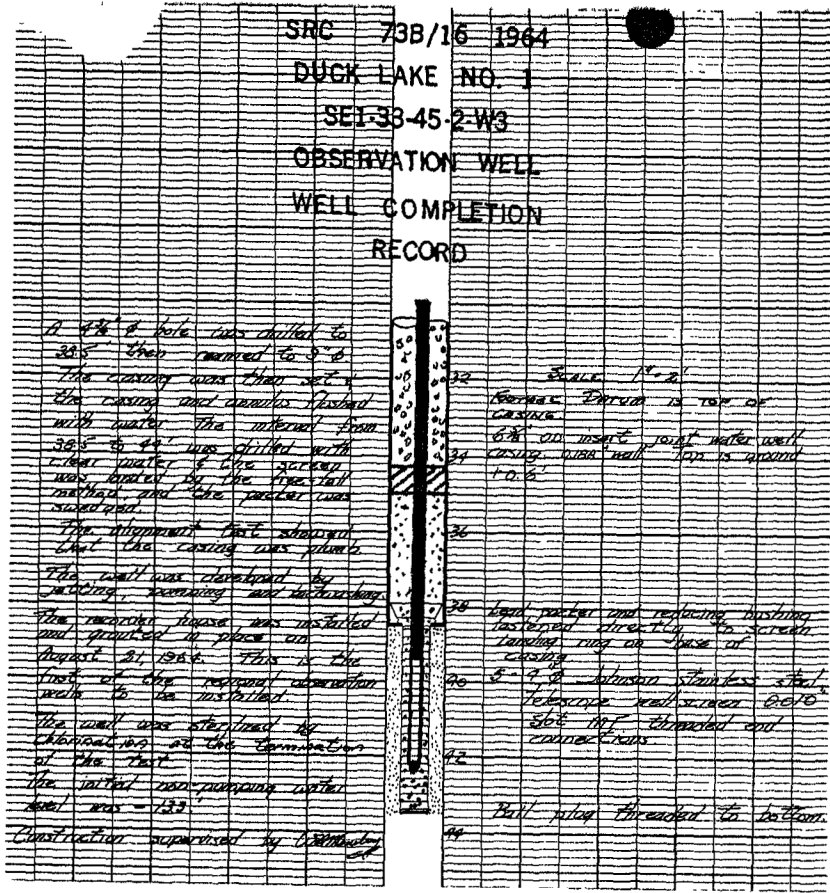 SRC 73B/16 1964
DUCK LAKE NO. 1
SE1-33-45-2-W3
OBSERVATION WELL
WELL COMPLETION
RECORD
A 4¾" φ hole was drilled to
38.5' then reamed to 9" φ
The casing was then set &
the casing and annulus flushed
with water The interval from
38.5' to 44' was drilled with
clear water & the screen
was landed by the free-fall
method and the packer was
swedged.
The alignment test showed
that the casing was plumb
The well was developed by
jetting, pumping and backwashing.
The recorder house was installed
and grouted in place on
August 21, 1964. This is the
first of the regional observation
wells to be installed.
The well was sterilized by
chlorination at the termination
of the test
The initial non-pumping water
level was
Construction supervised by
32
34
36
38
40
42
44
SCALE 1" = 2'
Footage Datum is TOP OF
CASING
OD insert joint water well
casing wall Top is ground
+0.6'
Lead packer and reducing bushing
fastened directly to screen
landing ring on base of
casing
Johnson stainless steel
telescope well screen 0.010"
slot threaded end
connections
Bail plug threaded to bottom.